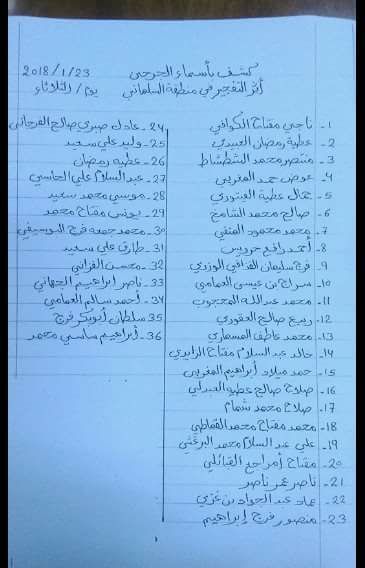 كشف بأسماء الجرحى 2018/1/23
أثر التفجير في منطقة السلماني يوم/الثلاثاء
1- ناجي مفتاح الكوافي
2- عطية رمضان العبيدي
3- منتصر محمد الشطشاط
4- عوض حمد المغربي
5- جمال عطية الفيتوري
6- صالح محمد الشامخ
7- محمد محمود المنفي
8- أحمد رافع حرويس
9- فرج سليمان القذافي الوزري
10- سراج بن عيسى العمامي
11- محمد عبدالله المحجوب
12- ربيع صالح العقوري
13- محمد عاطف المسماري
14- خالد عبدالسلام مفتاح الزايدي
15- حمد ميلاد أبراهيم المغربي
16- صلاح صالح عطيه العبدلي
17- صلاح محمد شمام
18- محمد مفتاح محمد القماطي
19- علي عبدالسلام محمد البرغثي
20- مفتاح أمراجع القبائلي
21- ناصر عمر ناصر
22- عماد عبدالجواد بن غزي
23- منصور فرج إبراهيم
24- عادل صبري صالح الفرجاني
25- وليد علي سعيد
26- عطيه رمضان
27- عبدالسلام علي الحاسي
28- موسى محمد سعيد
29- يونس مفتاح محمد
30- محمد جمعه فرج اليوسيفي
31- طارق علي سعيد
32- محسن الفزاني
33- ناصر ابراهيم الجهاني
34- أحمد سالم العمامي
35- سلطان أبوبكر فرج
36- أبراهيم ساسي محمد